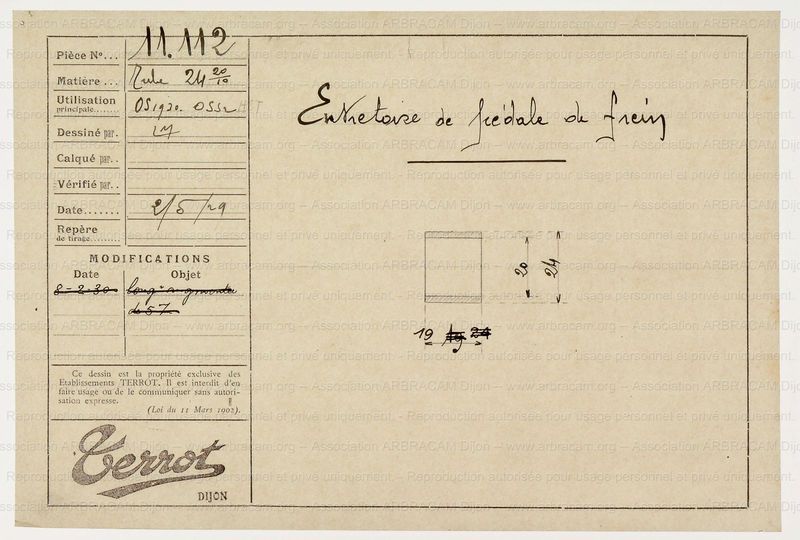 Pièce Nº... 11.112
Matière... Tube 24 20/10
Utilisation
principale........ OS1920. OSS2
Dessiné par.
Calqué par..
Vérifié par..
Date....... 2/5/29
Repère
de tirage.........
MODIFICATIONS
Date Objet
8-2-30 longr augmentée
de 5
Ce dessin est la propriété exclusive des
Etablissements TERROT. Il est interdit d'en
faire usage ou de le communiquer sans autori-
sation expresse.
(Loi du 11 Mars 1902).
Terrot
DIJON
Entretoise de pédale de frein
20 24
19 19 24
Association ARBRACAM Dijon – www.arbracam.org – Reproduction autorisée pour usage personnel et privé uniquement.